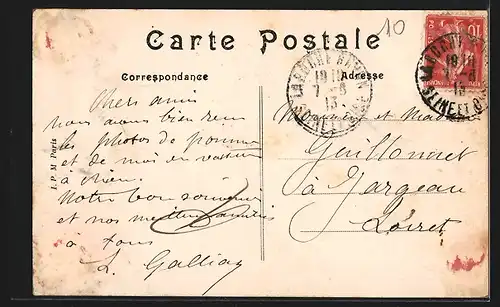 10
Carte Postale
Correspondance
Adresse
Chers amis
nous avons bien reçu
les photos de
et de moi en
à
Notre bon souvenir
et nos meilleures amitiés
à tous
L. Galliay
Monsieur et Madame
Guillonnet
à Jargeau
Loiret
I. P. M Paris
10
LA FERTE
19 10
7 - 8
13
SEINE ET OISE